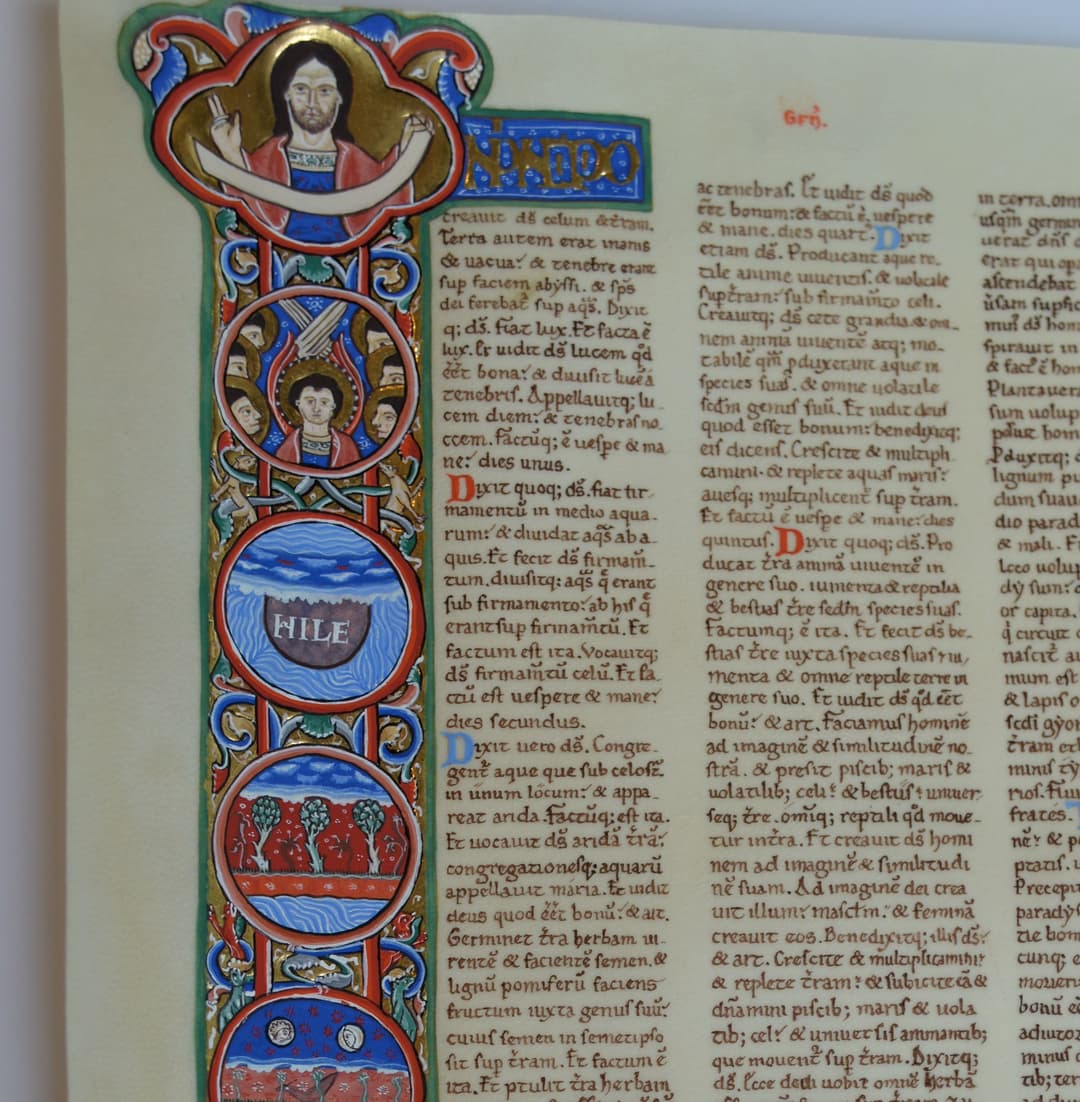 Gen̄.
N PNCIPIO
creauit ds̄ celum & t̄ram.
Terra autem erat inanis
& uacua: & tenebre erant
sup faciem abyssi. & sps̄
dei ferebat᷑ sup aq̄s. Dixit
q; ds̄. fiat lux. Et facta ē
lux. Et uidit ds̄ lucem qd̄
eēt bona: & diuisit lucē a
tenebris. Appellauitq; lu
cem diem: & tenebras no
ctem. factūq; ē uesp̄e & ma
ne: dies unus.
Dixit quoq; ds̄. fiat fir
mamentū in medio aqua
rum: & diuidat aq̄s ab a
quis. Et fecit ds̄ firmam̄
tum. diuisitq: aq̄s q̄ erant
sub firmamento: ab his q̄
erant sup firmam̄tū. Et
factum est ita. Vocauitq;
ds̄ firmam̄tū celū. Et fa
ctū est uespere & mane:
dies secundus.
Dixit uero ds̄. Congre
gent᷑ aque que sub celo s̄t
in unum locum: & appa
reat arida. Factūq; est ita.
Et uocauit ds̄ aridā t̄rā:
congregationesq; aquarū
appellauit maria. Et uidit
deus quod eēt bonū: & ait.
Germinet t̄ra herbam ui
rentē & facientē semen. &
lignū pomiferū faciens
fructum iuxta genus suū:
cuius semen in semetipso
sit sup t̄ram. Et factum ē
ita. Et ptulit t̄ra herbam
ac tenebras. Et uidit ds̄ quod
eēt bonum: & factū ē, uespere
& mane. dies quart᷑. Dixit
etiam ds̄. Producant aque re
tile anime uiuentis. & uolatile
sup t̄ram: sub firmam̄to celi.
Creauitq; ds̄ cete grandia. & om
nem animā uiuentē atq; mo
tabilē qm̄ pduxerant aque in
species suas. & omne uolatile
scd̄m genus suū. Et uidit deus
quod esset bonum: benedixitq;
eis dicens. Crescite & multipli
camini. & replete aquas maris:
auesq; multiplicent᷑ sup t̄ram.
Et factū ē uesp̄e & mane: dies
quintus. Dixit quoq; ds̄. Pro
ducat t̄ra animā uiuentē in
genere suo. iumenta & reptilia
& bestias t̄re scd̄m species suas.
Factumq; ē ita. Et fecit ds̄ be
stias t̄re iuxta species suas. iu
menta & omne reptile terre in
genere suo. Et uidit ds̄ qd̄ eēt
bonū: & ait. Faciamus hominē
ad imaginē & similitudinē no
strā. & presit piscib; maris &
uolatilib; celi: & bestiis uniuer
seq; t̄re. omiq; reptili qd̄ moue
tur in t̄ra. Et creauit ds̄ homi
nem ad imaginē & similitudi
nē suam. Ad imaginē dei crea
uit illum: masclm̄. & feminā
creauit eos. Benedixitq; illis ds̄:
& ait. Crescite & multiplicamini:
& replete t̄ram: & subicite eā &
dn̄amini piscib; maris & uola
tib; celi: & uniuersis animantib;
que mouent᷑ sup t̄ram. Dixitq;
ds̄. Ecce dedi uobis omnē herbā
in terra. om
usqm̄ germin
uerat dn̄s d
erat qui op
ascendebat
ūsam supfic
mus ds̄ hom
spirauit in
& fact᷑ ē hom
Plantauera
sum uolup
posuit hom
Pduxitq;
lignum pu
dum suau
dio parad
& mali. F
loco uolup
dysum:
or capita.
q̄ circuit
nascit᷑ au
mum est
& lapis o
scdi gyon
t̄ram eth
minis ty
rios. Fluu
frates.
nē: & p
ptatis. u
Precepi
paradys
tie bon
cunq; e
morieris
bonū eē
adiutor
minus d
tib; ter
HILE